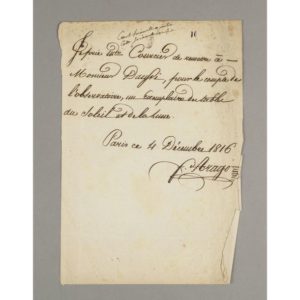 11
Je prie Mde Courcier de remettre à
Monsieur pour le compte de
l'observatoire, un Exemplaire des tables
du Soleil et de la Lune
Paris ce 4 Décembre 1816
Arago